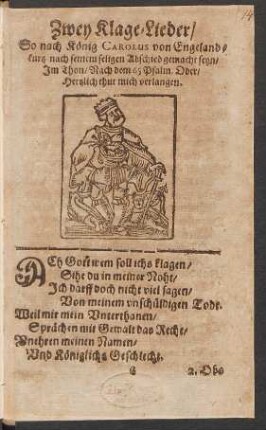 14
Zwey Klage-Lieder/
So nach König CAROLUS von Engeland/
kurtz nach seinem seligen Abschied gemacht seyn/
Im Thon/ Nach dem 65 Psalm. Oder/
Hertzlich thut mich verlangen.
ACh Gott wem soll ichs klagen/
Sihe du in meiner Noht/
Ich darff doch nicht viel sagen/
Von meinem vnschüldigen Todt.
Weil mir mein Vnterthanen/
Sprächen mit Gewalt das Recht/
Vnehren meinen Namen/
Vnd Königlichs Geschlecht.
2. Obs